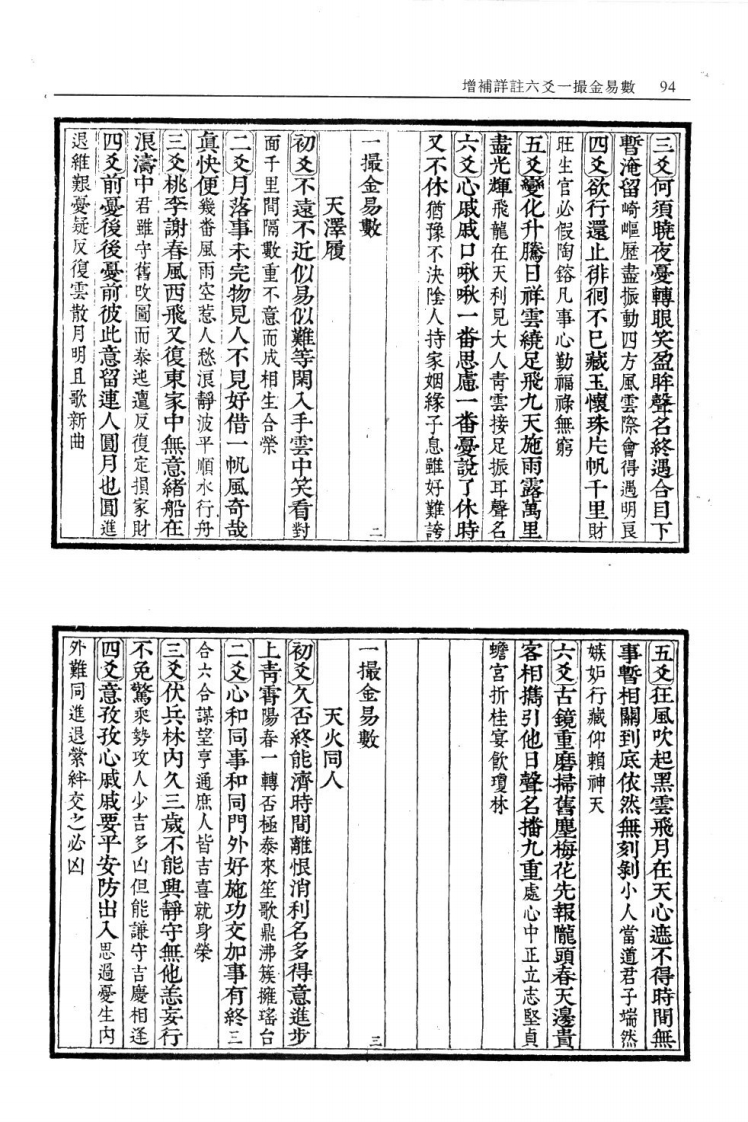 增補詳註六爻一撮金易數 94
三爻何須曉夜憂轉眼笑盈眸聲名終遇合目下
暫淹留崎嶇歷盡振動四方風雲際會得遇明良
四爻欲行還止徘徊不已藏玉懷珠片帆千里財
旺生官必假陶鎔凡事心勤福祿無窮
五爻變化升騰日祥雲繞足飛九天施雨露萬里
盡光輝飛龍在天利見大人靑雲接足振耳聲名
六爻心戚戚口啾啾一番思慮一番憂說了休時
又不休猶豫不決陰人持家姻緣子息雖好難誇
一撮金易數 二
天澤履
初爻不遠不近似易似難等閑入手雲中笑看對
面千里間隔數重不意而成相生合榮
二爻月落事未完物見人不見好借一帆風奇哉
眞快便幾番風雨空惹人愁浪靜波平順水行舟
三爻桃李謝春風西飛又復東家中無意緒船在
浪濤中君雖守舊改圖而泰迍邅反復定損家財
四爻前憂後後憂前彼此意留連人圓月也圓進
退維艱憂疑反復雲散月明且歌新曲
五爻狂風吹起黑雲飛月在天心遮不得時間無
事暫相關到底依然無刻剝小人當道君子端然
嫉妒行藏仰賴神天
六爻古鏡重磨掃舊塵梅花先報隴頭春天邊貴
客相攜引他日聲名播九重處心中正立志堅貞
蟾宮折桂宴飮瓊林
一撮金易數 三
天火同人
初爻久否終能濟時間離恨消利名多得意進步
上靑霄陽春一轉否極泰來笙歌鼎沸簇擁瑤台
二爻心和同事和同門外好施功交加事有終三
合六合謀望亨通庶人皆吉喜就身榮
三爻伏兵林內久三歲不能興靜守無他恙妄行
不免驚乘勢攻人少吉多凶但能謙守吉慶相逢
四爻意孜孜心戚戚要平安防出入思過憂生內
外難同進退縈絆交之必凶